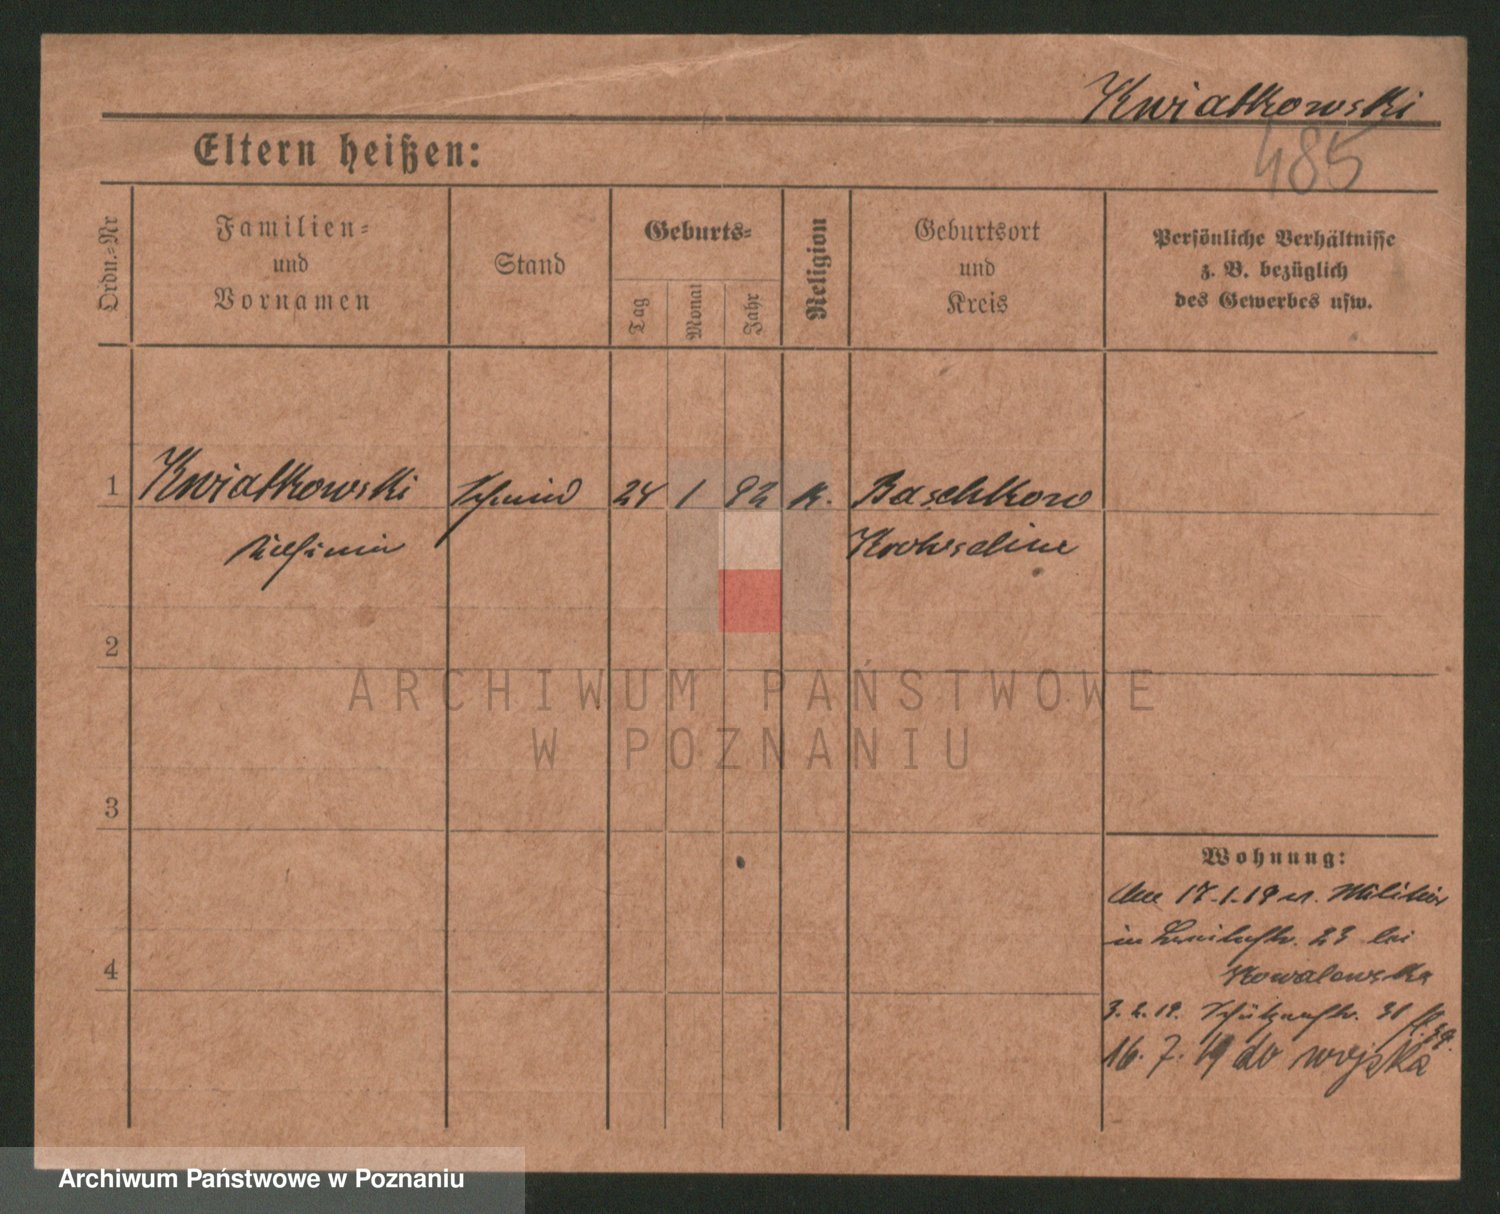 Kwiatkowski
485
Eltern heißen:
Ordn.-Nr
Familien-
und
Vornamen
Stand
Geburts-
Tag
Monat
Jahr
Religion
Geburtsort
und
Kreis
Persönliche Verhältnisse
z. B. bezüglich
des Gewerbes usw.
1 Kwiatkowski Schmied 24 1 92 k. Baschkow
Krotoschin
2
ARCHIWUM PAŃSTWOWE
W POZNANIU
3
Wohnung:
17.1.19 v. Militär
in 23 bei
Kowalewska
4
3.2.19. Schützenstr. 31
16.7.19 do wojska
Archiwum Państwowe w Poznaniu